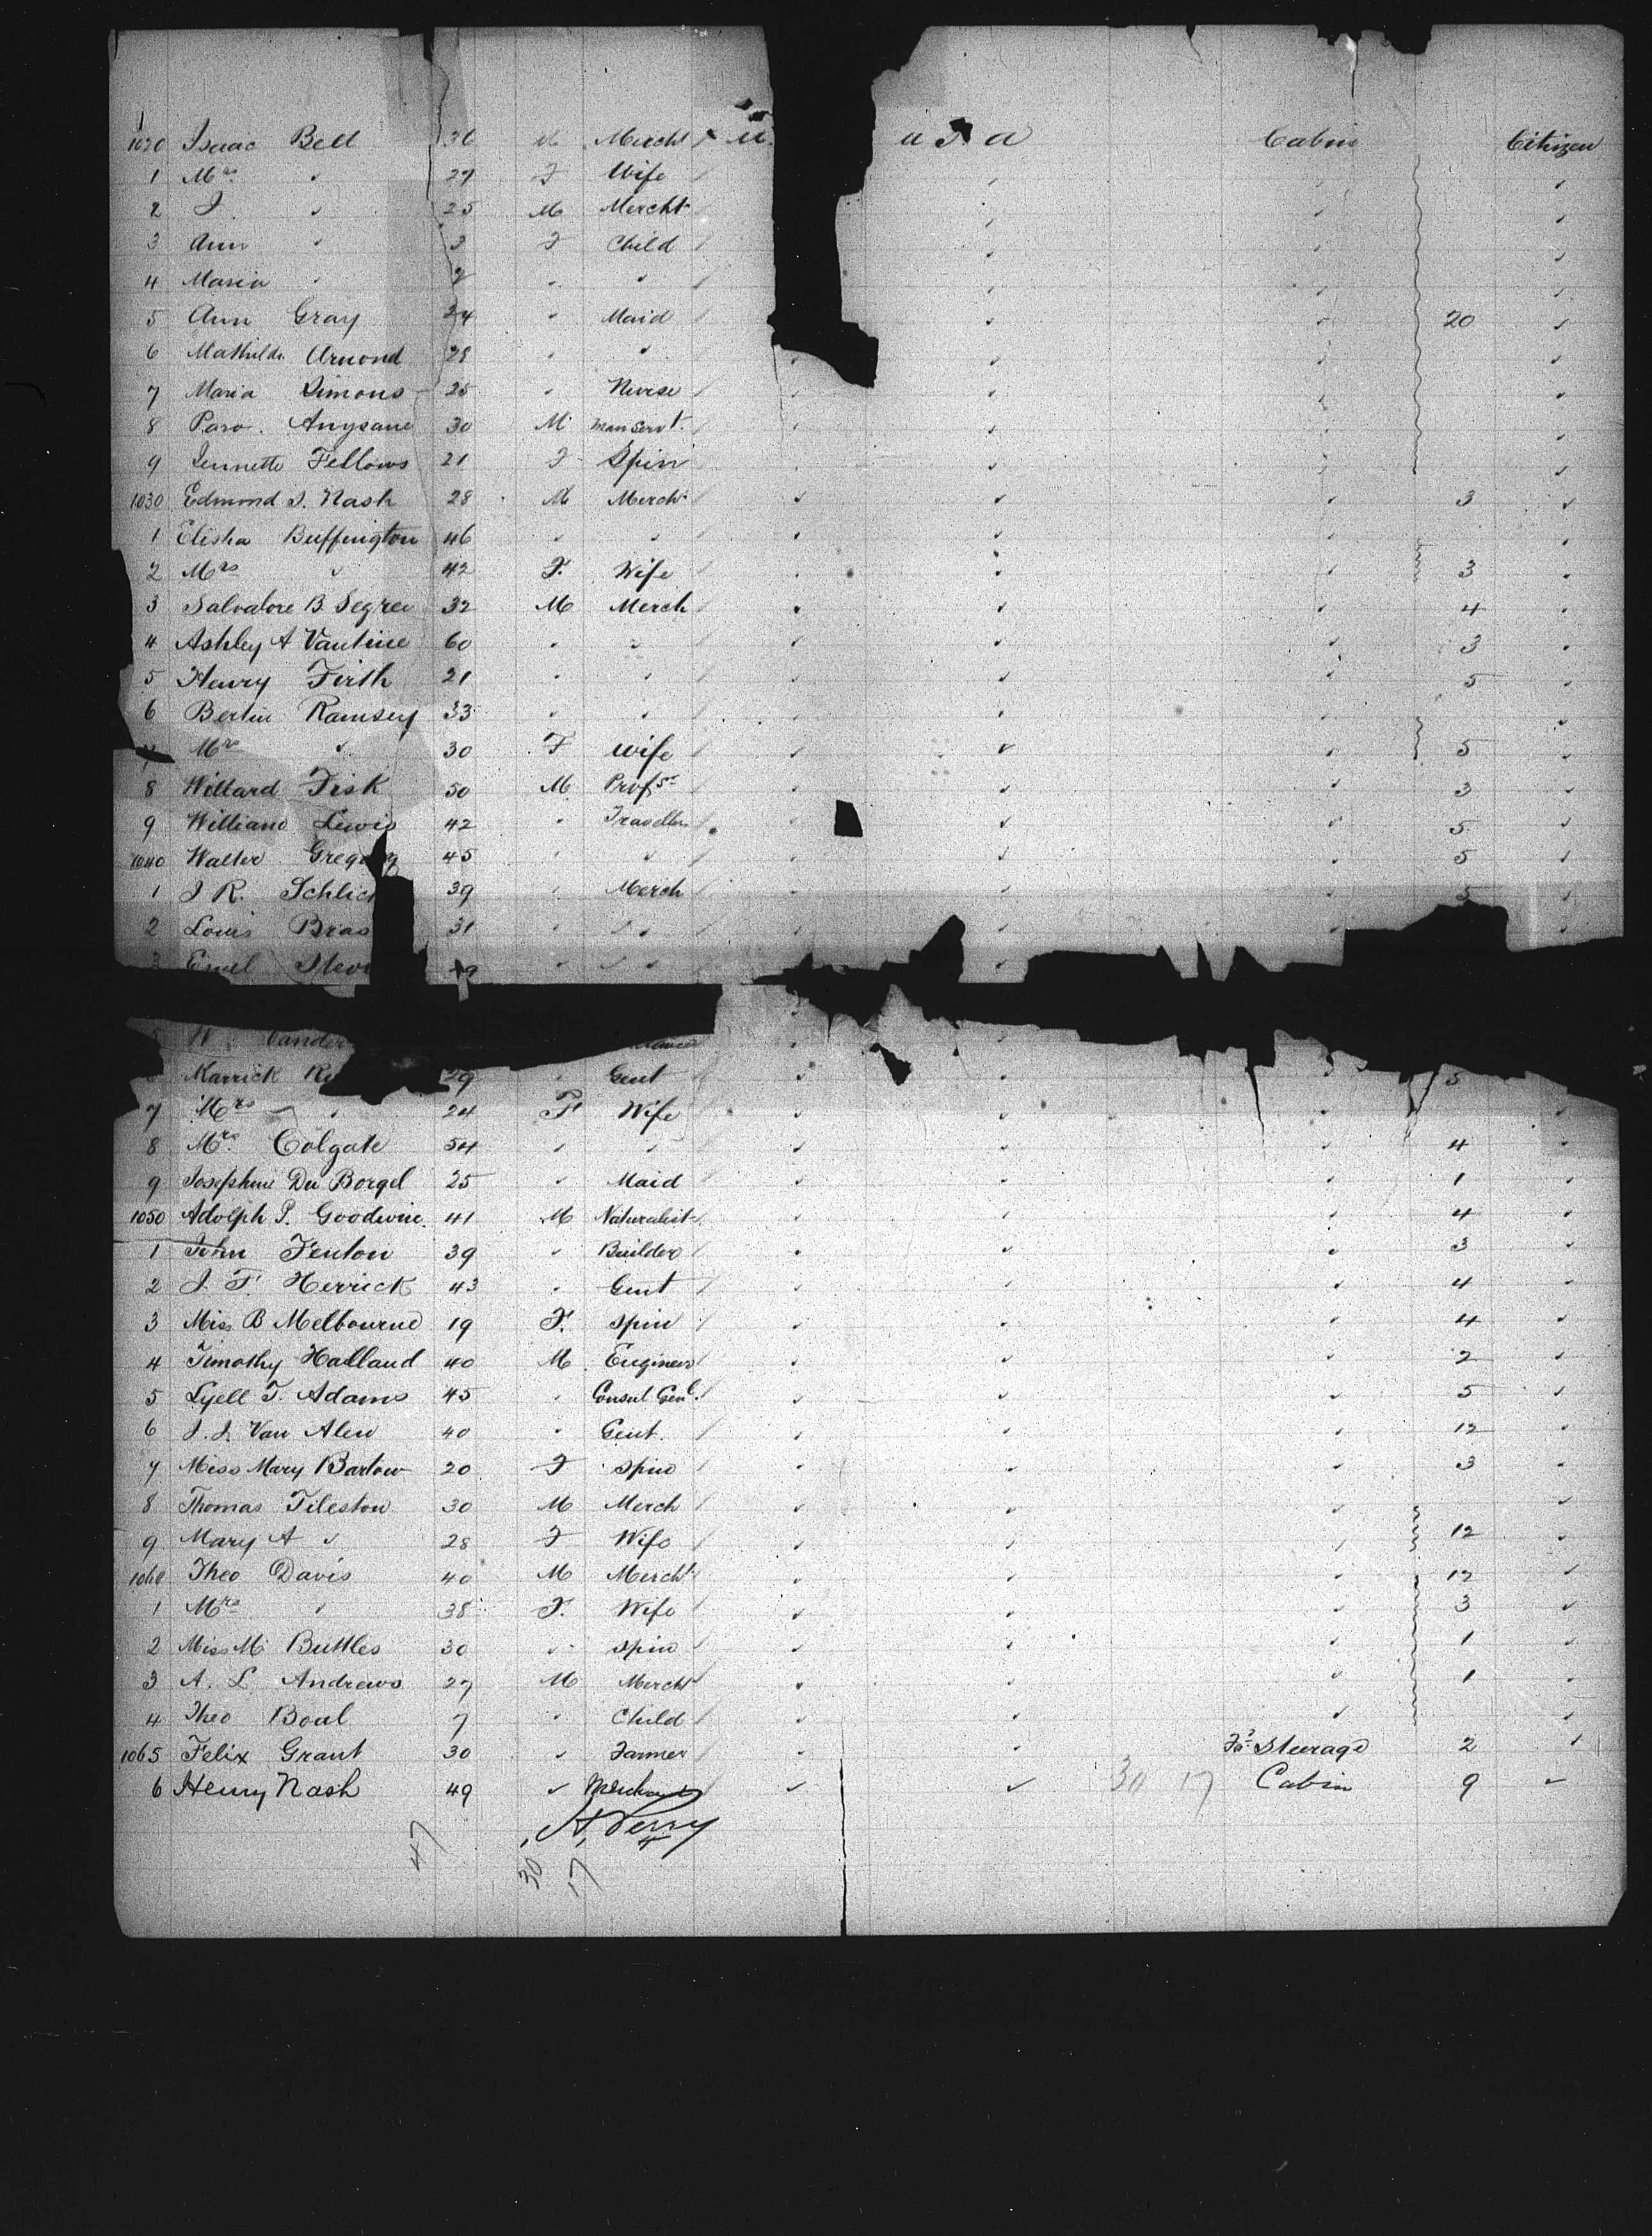 1020 Isaac Bell 36 M Mercht U. U S A Cabin Citizen
1 Mrs " 27 F Wife
2 J. " 25 M Mercht
3 Ann " 3 F Child
4 Maria " 2 " "
5 Ann Gray 24 " Maid 20
6 Mathilde Arnond 28 " "
7 Maria Simons 25 " Nurse
8 30 M Man Servt.
9 Jennette Fellows 21 F Spin
1030 Edmond S. Nash 28 M Mercht 3
1 Elisha Buffington 46 " "
2 Mrs " 42 F. Wife 3
3 Salvatore B. Segree 32 M Merch 4
4 Ashley A Vantine 60 " " 3
5 Henry Firth 21 " " 5
6 Bertin Ramsey 33 " "
7 Mrs " 30 F Wife 5
8 Willard Fisk 50 M Profsr 3
9 William Lewis 42 " Traveller 5
1040 Walter Gregory 45 " " 5
1 J R. Schlick 39 " Merch 5
2 Louis Bras 31 " "
3 Emel Stev " "
5 W. Vander
Karrick 29 " Gent 5
7 Mrs " 24 F Wife
8 Mrs Colgate 54 " " 4
9 Josephine Du Borgel 25 " Maid 1
1050 Adolph P. Goodwin. 41 M Naturalist 4
1 John Fenton 39 " Builder 3
2 J. F. Herrick 43 " Gent 4
3 Miss B Melbourne 19 F. Spin 4
4 Timothy Halland 40 M Engineer 2
5 Lyell T. Adams 45 " Consul Genl. 5
6 J. J. Van Alen 40 " Gent. 12
7 Miss Mary Barlow 20 F Spin 3
8 Thomas Tileston 30 M Merch
9 Mary A " 28 F Wife 12
1060 Theo Davis 40 M Mercht 12
1 Mrs " 38 F. Wife 3
2 Miss M Buttles 30 " Spin 1
3 A. L. Andrews 27 M Mercht 1
4 Theo Boul 7 " Child
1065 Felix Grant 30 " Farmer Steerage 2
6 Henry Nash 49 " Merchant 30 17 Cabin 9
A. Perry
47 30 17